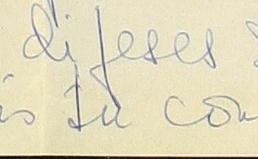 difeses
is în con